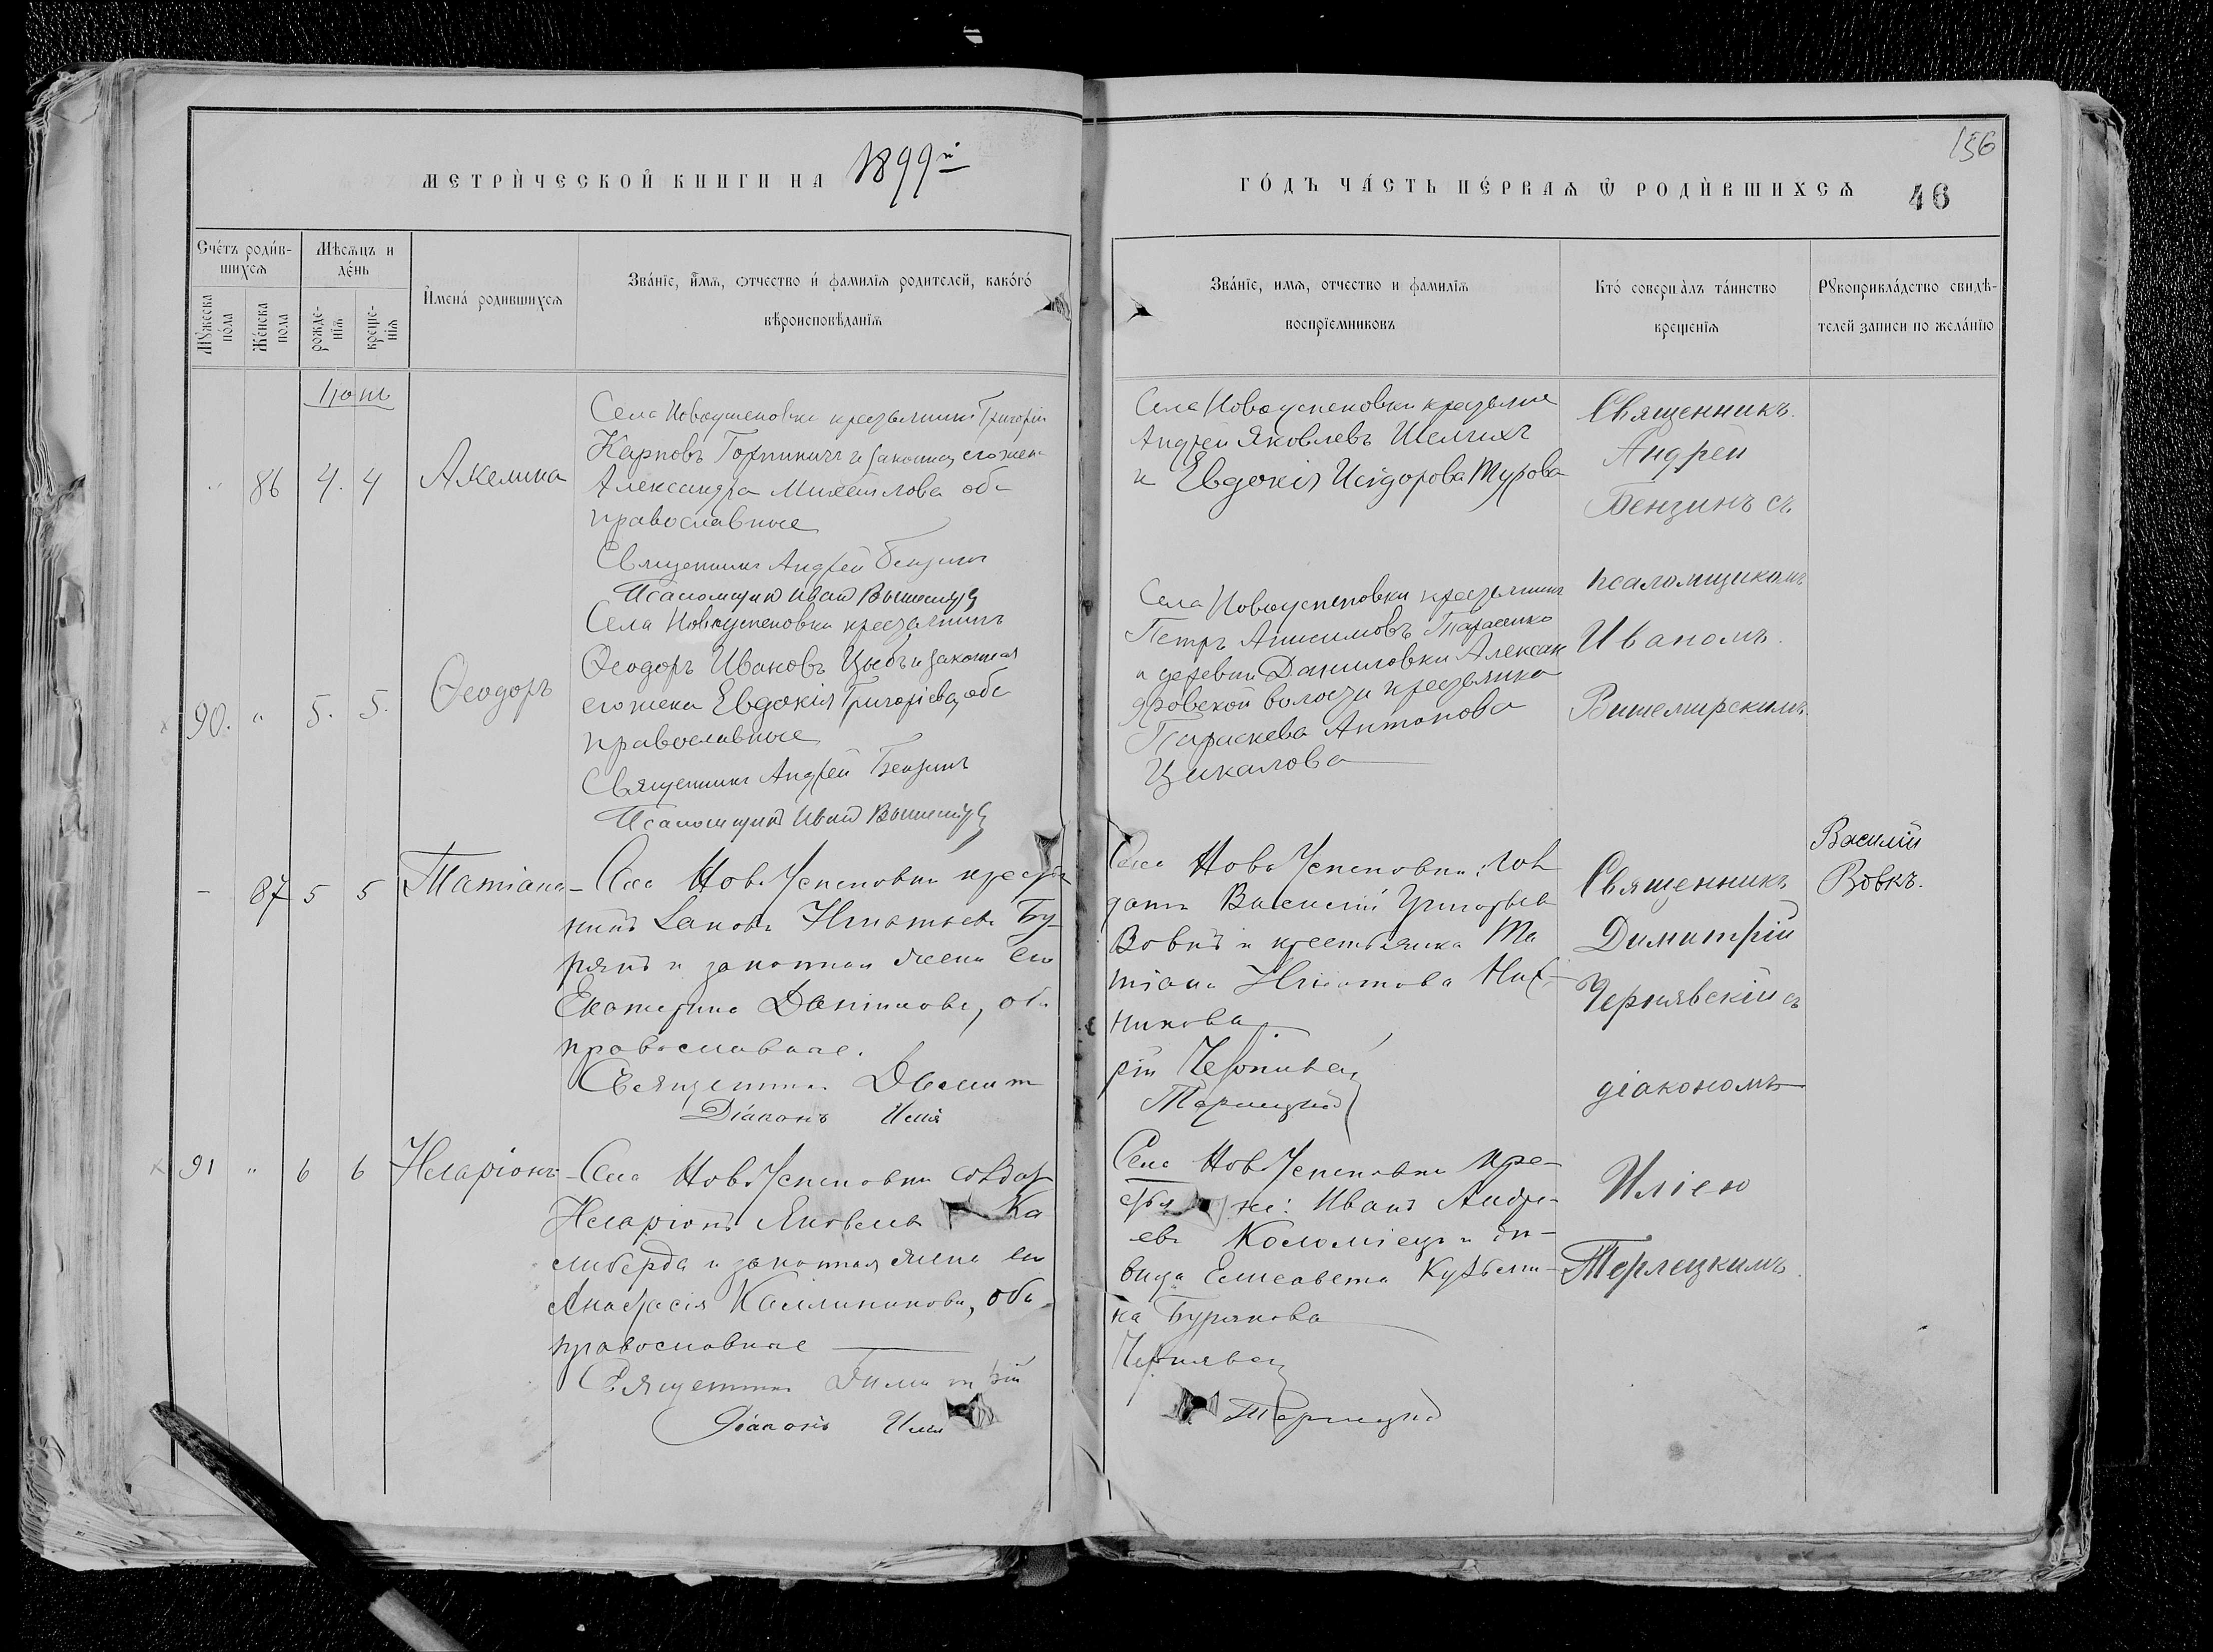 156
МЕТРИ́ЧЕСКОЙ КНИГИ НА 1899й
ГО́ДЪ ЧА́СТЬ ПЕ́РВАѦ Ѿ РОДИ́ВШИХСѦ 46
Сче́тъ роди́в-
шихсѧ
Мѣсѧцъ и
де́нь
Мꙋжеска
по́ла
Же́нска
пола
рожде-
нїѧ
креще-
нїѧ
И҆мена́ родившихсѧ
Зва́нїе, и҆́мѧ, ѻтчество и҆ фамилїѧ родителей, како́гѡ́
вѣроисповѣ́данїѧ
Зва́нїе, имѧ, отчество и фамилїѧ
воспрїемниковъ
Кто́ соверша̀лъ та́инство
крещенїѧ
Рꙋкоприкла́дство свидѣ-
телей записи по жела́нїю
Іюнь
" 86 4. 4 Акелина
Села Новоуспеновки крестьянинъ Григорій
Карповъ и законная его жена
Александра Михайлова оба
православные
Священникъ Андрей Бензинъ
Псаломщикъ Иванъ
Села Новоуспеновки крестьяне
Андрей Яковлевъ Шелихъ
и Евдокія Исидорова Турова
Священникъ
Андрей
Бензинъ съ
псаломщикомъ
Иваномъ
Вишемирскимъ.
90. " 5. 5. Ѳеодоръ
Села Новоуспеновки крестьянинъ
Ѳеодоръ Ивановъ Цыбъ и законная
его жена Евдокія Григоріева, оба
православные
Священникъ Андрей Бензинъ
Псаломщикъ Иванъ
Села Новоуспеновки крестьянинъ
Петръ Анисимовъ Тарасенко
и деревни Даниловки Алексан
дровской волости крестьянка
Параскева Антонова
Цикалова
- 87 5 5 Татіана
Села НовоУспеновки крестья
нинъ Игнатьевъ Бу-
рякъ и законная жена его
Екатерина Даниилова, оба
православные.
Священникъ Димит
Діаконъ Илія
Села НовоУспеновки: сол
датъ Василій Григорьев
Вовкъ и крестьянка Та
тіана Игнатова
никова
рій Чернявскій
Терлецкій
Священникъ
Димитрій
Чернявскій съ
діакономъ
Иліею
Терлецкимъ.
Василій
Вовкъ.
91 " 6 6 Иларіонъ
Села НовоУспеновки солдат
Иларіонъ Яковлев Ка
либерда и законная жена его
Анастасія Каллиникова, оба
православные
Священникъ Димитрій
Діаконъ Илія
Села НовоУспеновки кре-
стья не: Иванъ Андре-
евъ Коломіецъ и дѣ-
вица Елисавета Кузьми-
на Бурякова
Чернявскій
Терлецкій